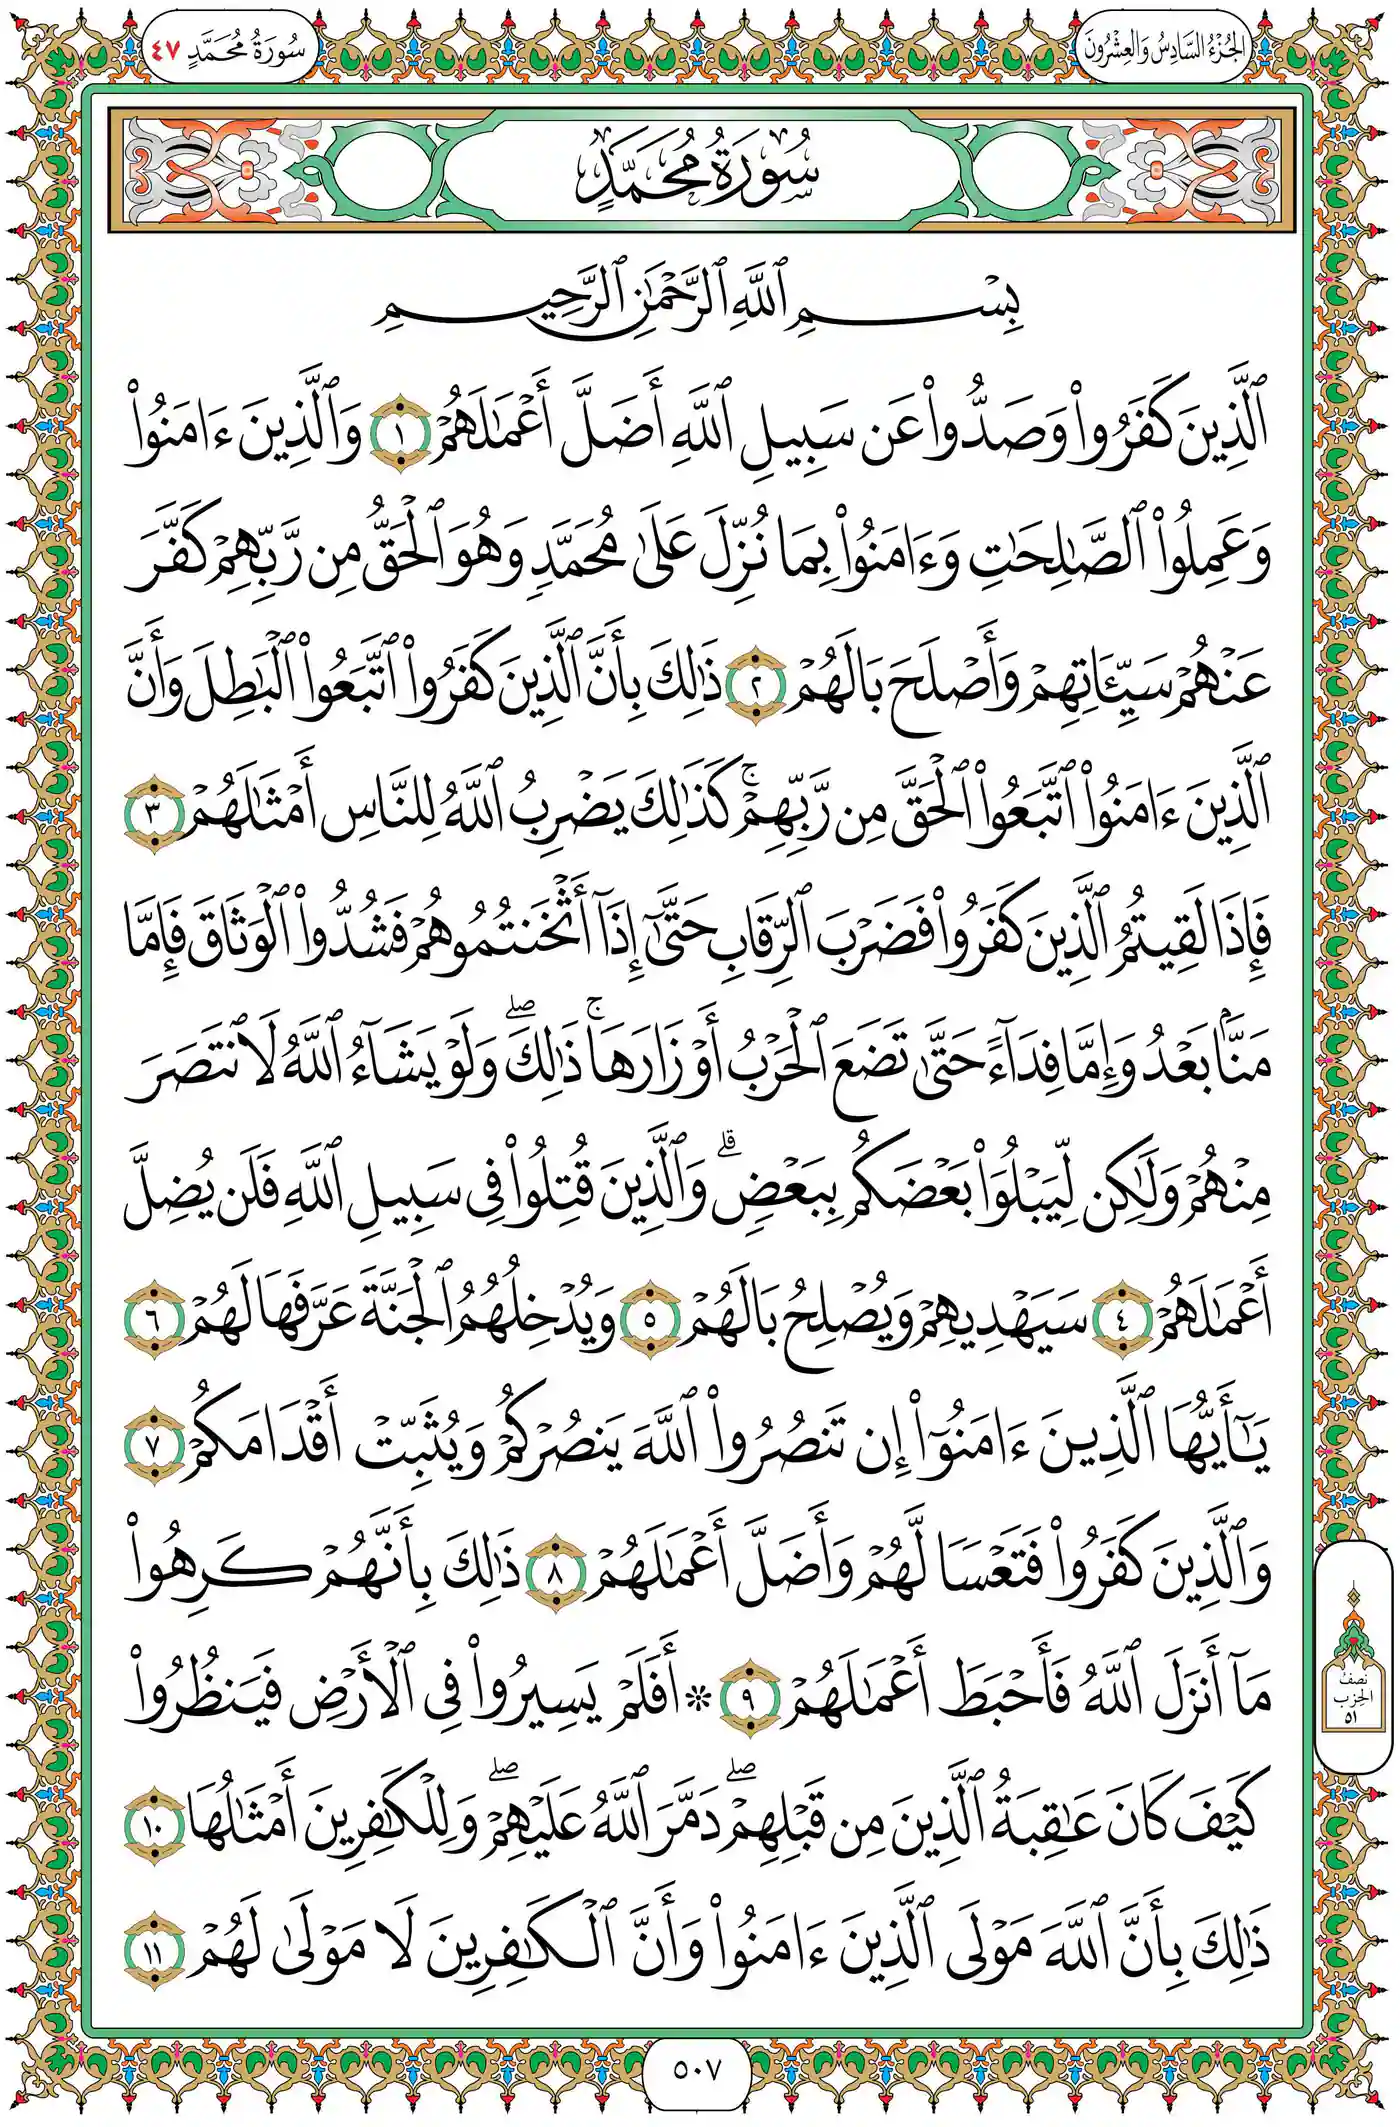 الجُزْءُ السَّادِسُ وَالعِشْرُونَ
سُورَةُ مُحَمَّدٍ ٤٧
سُورَةُ مُحَمَّدٍ
بِسْمِ ٱللَّهِ ٱلرَّحْمَٰنِ ٱلرَّحِيمِ
ٱلَّذِينَ كَفَرُوا۟ وَصَدُّوا۟ عَن سَبِيلِ ٱللَّهِ أَضَلَّ أَعْمَٰلَهُمْ ١ وَٱلَّذِينَ ءَامَنُوا۟
وَعَمِلُوا۟ ٱلصَّٰلِحَٰتِ وَءَامَنُوا۟ بِمَا نُزِّلَ عَلَىٰ مُحَمَّدٍ وَهُوَ ٱلْحَقُّ مِن رَّبِّهِمْ كَفَّرَ
عَنْهُمْ سَيِّـَٔاتِهِمْ وَأَصْلَحَ بَالَهُمْ ٢ ذَٰلِكَ بِأَنَّ ٱلَّذِينَ كَفَرُوا۟ ٱتَّبَعُوا۟ ٱلْبَٰطِلَ وَأَنَّ
ٱلَّذِينَ ءَامَنُوا۟ ٱتَّبَعُوا۟ ٱلْحَقَّ مِن رَّبِّهِمْ ۚ كَذَٰلِكَ يَضْرِبُ ٱللَّهُ لِلنَّاسِ أَمْثَٰلَهُمْ ٣
فَإِذَا لَقِيتُمُ ٱلَّذِينَ كَفَرُوا۟ فَضَرْبَ ٱلرِّقَابِ حَتَّىٰٓ إِذَآ أَثْخَنتُمُوهُمْ فَشُدُّوا۟ ٱلْوَثَاقَ فَإِمَّا
مَنًّۢا بَعْدُ وَإِمَّا فِدَآءً حَتَّىٰ تَضَعَ ٱلْحَرْبُ أَوْزَارَهَا ۚ ذَٰلِكَ ۖ وَلَوْ يَشَآءُ ٱللَّهُ لَٱنتَصَرَ
مِنْهُمْ وَلَٰكِن لِّيَبْلُوَا۟ بَعْضَكُم بِبَعْضٍ ۗ وَٱلَّذِينَ قُتِلُوا۟ فِى سَبِيلِ ٱللَّهِ فَلَن يُضِلَّ
أَعْمَٰلَهُمْ ٤ سَيَهْدِيهِمْ وَيُصْلِحُ بَالَهُمْ ٥ وَيُدْخِلُهُمُ ٱلْجَنَّةَ عَرَّفَهَا لَهُمْ ٦
يَٰٓأَيُّهَا ٱلَّذِينَ ءَامَنُوٓا۟ إِن تَنصُرُوا۟ ٱللَّهَ يَنصُرْكُمْ وَيُثَبِّتْ أَقْدَامَكُمْ ٧
وَٱلَّذِينَ كَفَرُوا۟ فَتَعْسًا لَّهُمْ وَأَضَلَّ أَعْمَٰلَهُمْ ٨ ذَٰلِكَ بِأَنَّهُمْ كَرِهُوا۟
مَآ أَنزَلَ ٱللَّهُ فَأَحْبَطَ أَعْمَٰلَهُمْ ٩ * أَفَلَمْ يَسِيرُوا۟ فِى ٱلْأَرْضِ فَيَنظُرُوا۟
كَيْفَ كَانَ عَٰقِبَةُ ٱلَّذِينَ مِن قَبْلِهِمْ ۖ دَمَّرَ ٱللَّهُ عَلَيْهِمْ ۖ وَلِلْكَٰفِرِينَ أَمْثَٰلُهَا ١٠
ذَٰلِكَ بِأَنَّ ٱللَّهَ مَوْلَى ٱلَّذِينَ ءَامَنُوا۟ وَأَنَّ ٱلْكَٰفِرِينَ لَا مَوْلَىٰ لَهُمْ ١١
نصف
الحزب
٥١
٥٠٧